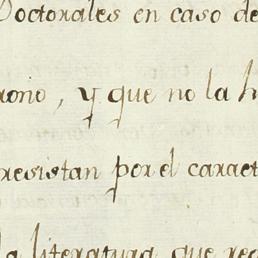 Doctorales en caso de
rono, y que no la h
resistan por el caract
la literatura que rec